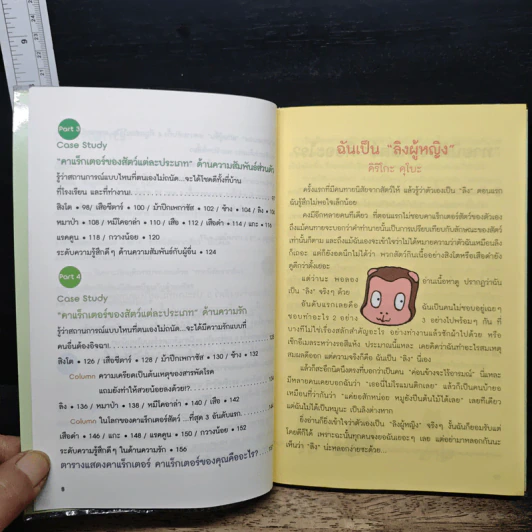 Part 3
Case Study
"คาแร็กเตอร์ของสัตว์แต่ละประเภท" ด้านความสัมพันธ์ส่วนตัว
รู้ว่าสถานการณ์แบบไหนที่ตนเองไม่ถนัด...จะได้โชคดีทั้งที่บ้าน
ที่โรงเรียน และที่ทำงาน!
สิงโต • 98/ เสือชีตาร์ • 100 / ม้าปีกเพกาซัส • 102/ ช้าง • 104 / ลิง •
หมาป่า • 108 / หมีโคอาล่า • 110 / เสือ • 112 / เสือดำ • 114 / แกะ • 116
แรคคูน • 118 / กวางน้อย • 120
ระดับความรู้สึกดีๆ ด้านความสัมพันธ์กับผู้อื่น • 124
Part 4
Case Study
"คาแร็กเตอร์ของสัตว์แต่ละประเภท" ด้านความรัก
รู้ว่าสถานการณ์แบบไหนที่ตนเองไม่ถนัด...จะได้มีความรักแบบที่
คนอื่นต้องอิจฉา
สิงโต • 126 / เสือชีตาร์ • 128 / ม้าปีกเพกาซัส • 130 / ช้าง • 132
Column ความเครียดเป็นต้นเหตุของสารพัดโรค
แถมยังทำให้สวยน้อยลงด้วย!?
ลิง • 136 / หมาป่า • 138 / หมีโคอาล่า • 140 / เสือ • 142
Column ในโลกของคาแร็กเตอร์สัตว์ ...ที่สุด 3 อันดับแรก
เสือดำ • 146 / แกะ • 148 / แรคคูน • 150 / กวางน้อย • 152
ระดับความรู้สึกดีๆ ในด้านความรัก • 156
ตารางแสดงคาแร็กเตอร์ คาแร็กเตอร์ของคุณคืออะไร?
8
ฉันเป็น "ลิงผู้หญิง"
คิริโกะ คุโบะ
ครั้งแรกที่มีคนทายนิสัยจากสัตว์ให้ แล้วรู้ว่าตัวเองเป็น "ลิง" ตอนแรก
ฉันรู้สึกไม่พอใจเล็กน้อย
คงมีอีกหลายคนทีเดียว ที่ตอนแรกไม่ชอบคาแร็กเตอร์สัตว์ของตัวเอง
ถึงแม้คนทายจะบอกว่าคำทำนายนั้นเป็นการเปรียบเทียบกับลักษณะของสัตว์
เท่านั้นก็ตาม และถึงแม้ฉันเองจะเข้าใจว่าไม่ได้หมายความว่าตัวฉันเหมือนลิง
ก็เถอะ แต่ก็ยังอดนึกไม่ได้ว่า พวกสัตว์กินเนื้ออย่างสิงโตหรือเสือดำยัง
ดูดีกว่าตั้งเยอะ
แต่ว่านะ พอลอง อ่านเนื้อหาดู ปรากฏว่าฉัน
เป็น "ลิง" จริงๆ ด้วย
อันดับแรกเลยคือ ฉันเป็นคนไม่ชอบอยู่เฉยๆ
ชอบทำอะไร 2 อย่าง 3 อย่างไปพร้อมๆ กัน ทั้
บางทีไม่ใช่เรื่องสลักสำคัญอะไร อย่างทำงานแล้วซักผ้าไปด้วย หรือ
เช็กอีเมลระหว่างรอรีดผ้า ประมาณนี้แหละ เลยคิดว่าฉันทำอะไรสมเหตุ
สมผลดีออก แต่ความจริงก็คือ ฉันเป็น "ลิง" นี่เอง
แล้วก็สะอึกนิดนึงตรงที่บอกว่าเป็นคน "ค่อนข้างจะไร้อารมณ์" นี่แหละ
มีหลายคนเคยบอกฉันว่า "เธอนี่ไม่โรแมนติกเลย" แล้วก็เป็นคนบ้ายอ
เหมือนที่ว่ากันว่า "แค่ยอสักหน่อย หมูยังปีนต้นไม้ได้เลย" เลยทีเดียว
แต่ฉันไม่ได้เป็นหมูนะ เป็นลิงต่างหาก
ยิ่งอ่านก็ยิ่งเข้าใจว่าตัวเองเป็น "ลิงผู้หญิง" จริงๆ งั้นฉันก็ยอมรับแต่
โดยดีก็ได้ เพราะฉะนั้นทุกคนของฉันเยอะๆ เลย แต่อย่ามาหลอกกันนะ
เห็นว่า "ลิง" น่ะหลอกง่ายซะด้วย...